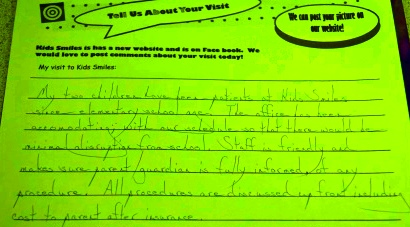 Tell Us About Your Visit
We can post your picture on
our website!
Kids Smiles has a new website and is on Face book. We
would love to post comments about your visit today!
My visit to Kids Smiles:
My two children have been patients at Kids Smiles
since elementary school age. The office has been
accomodating with our schedule so that there would be
minimal disruption from school. Staff is friendly and
makes sure parent/guardian is fully informed, of any
procedure. All procedures are discussed up front including
cost to parent after insurance.